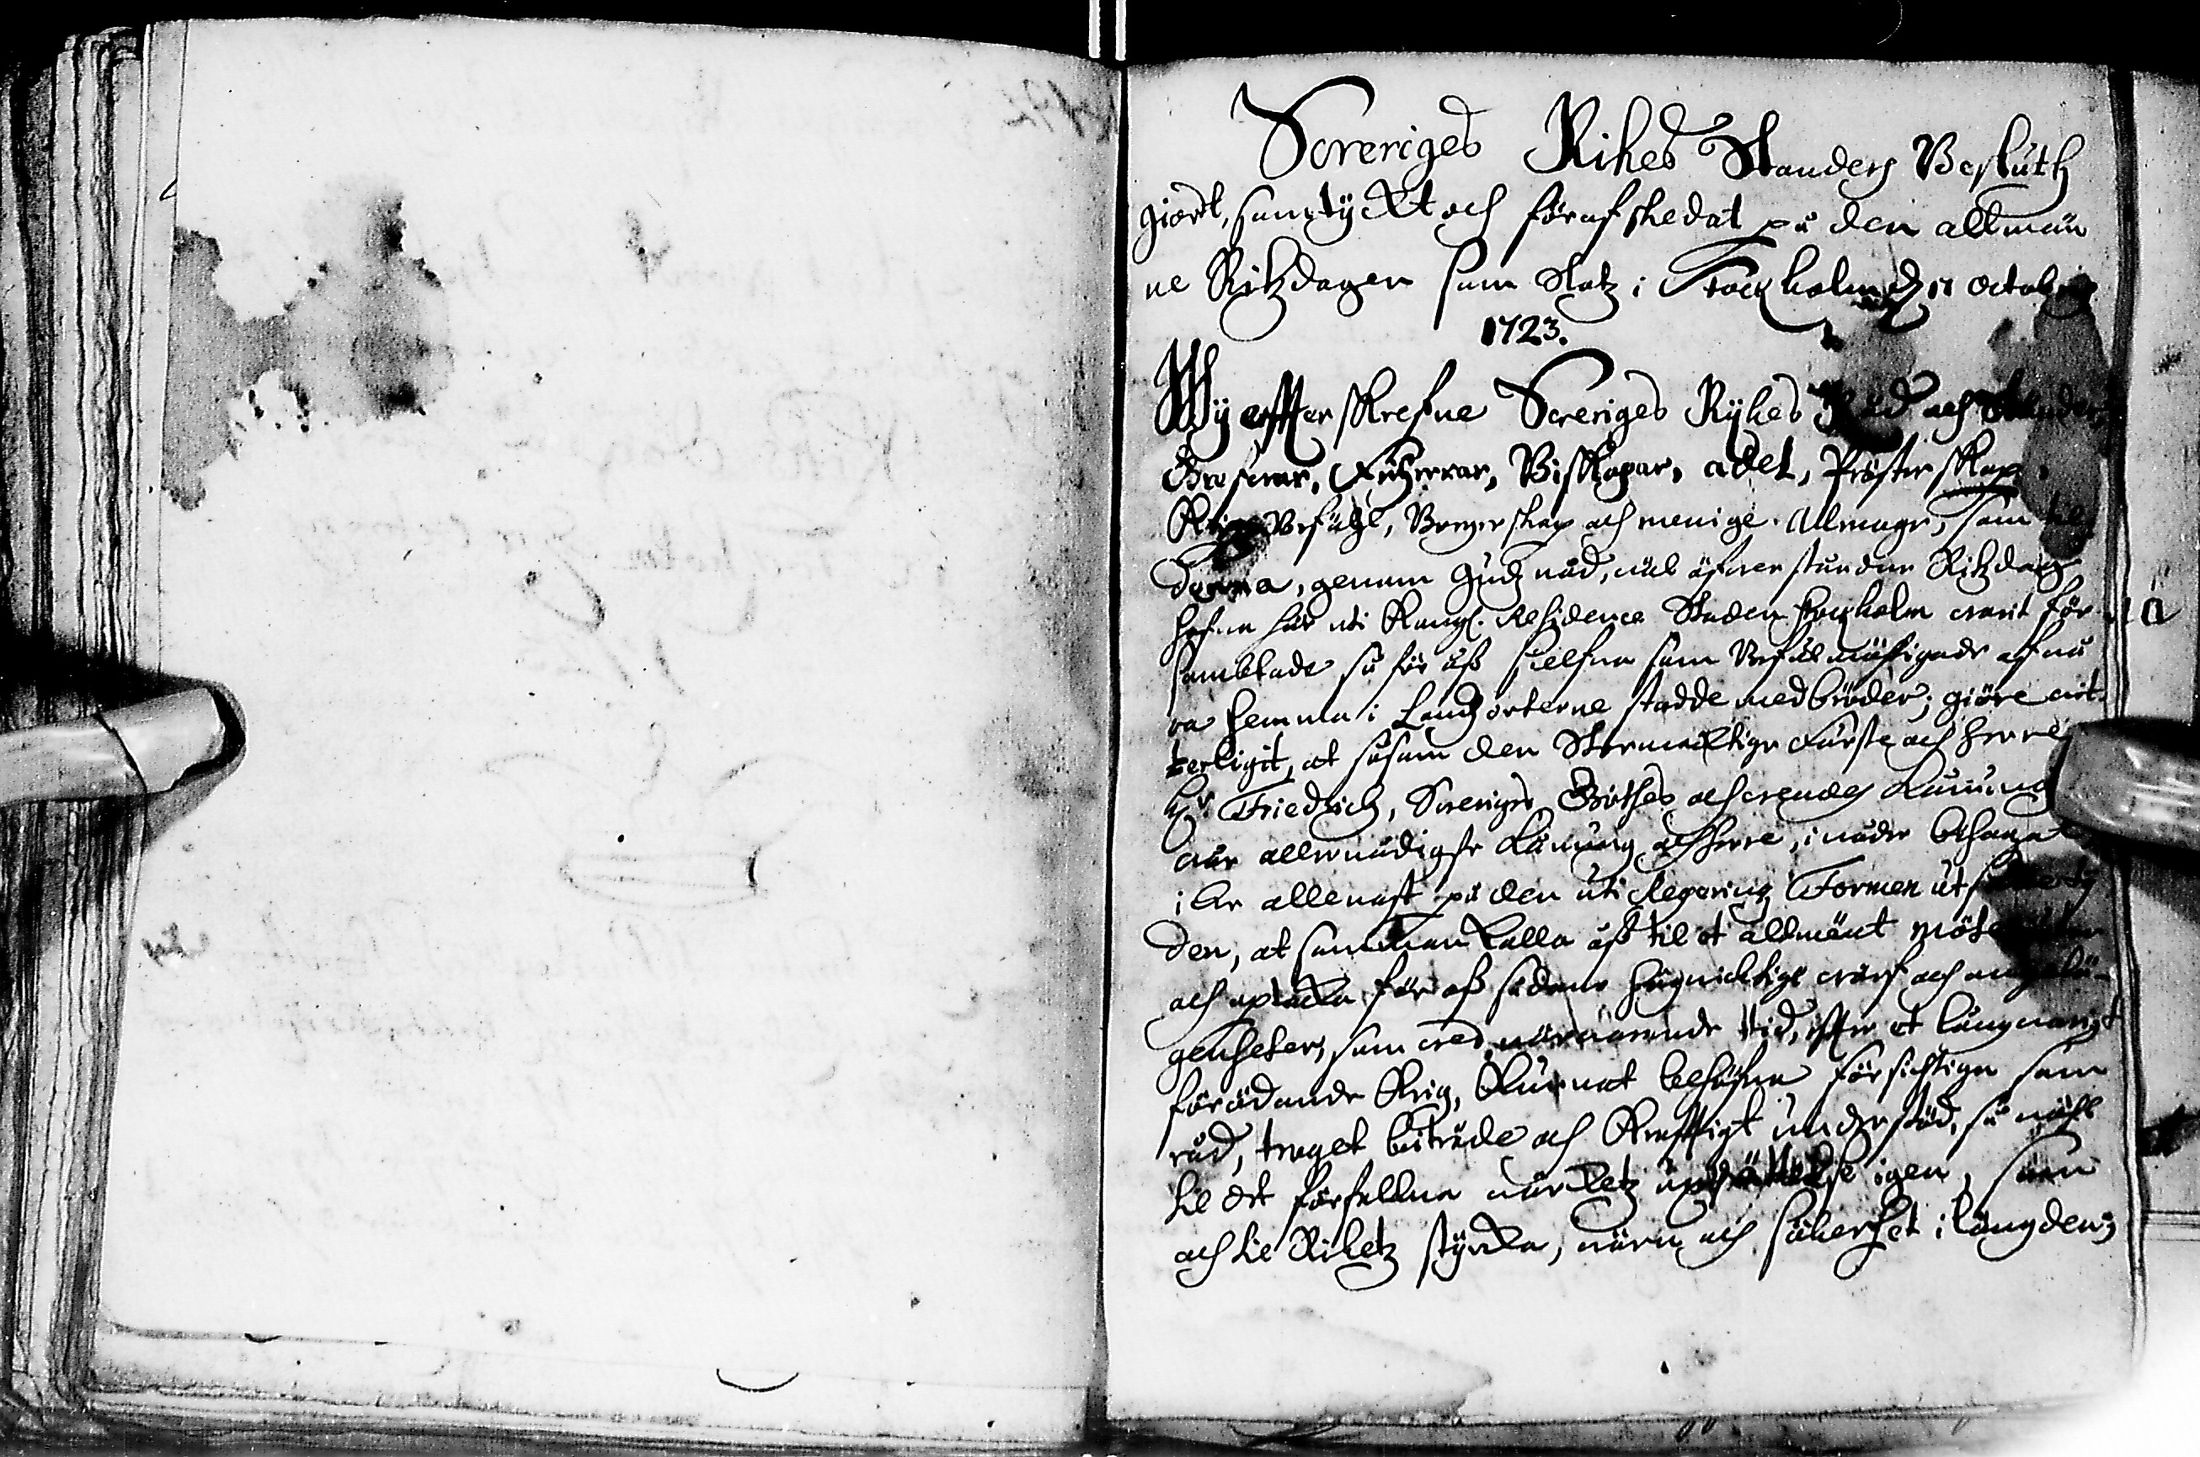 Sweriges Rikes Ständers Besluth
giordt, samtyckt och förafskedat på den allmän
ne Riksdagen som slöts i Stockholm d. 17 Octobris
1723.
Wij effterskrefne Sweriges Rijkes Råd och Ständer,
Grefwar, Friherrar, Biskopar, Adel, Prästerskap,
Krigs Befähl, Borgerskap och menige Allmoge, som til
denna, genom Gudz nåd, wäl öfwerståndne Rikzdag
hafwa här uti Kongl. Residence Staden Stockholm warit för
samblade så för oss sielfwa som Befulmächtigade af wå
ra hemma i Landzorterne stadde medbröder; giöre wit
terligit, at såsom den Stormächtigste Furste och Herre
H:r Friedrich, Sweriges Göthes och Wendes Konung
wår allernådigste Konung och Herre, i nåder behagat
icke allenast på den uti Regerings Formen utsatte
den, at sammankalla oss til et allmänt möte
och uptäckia för oss sådane högwichtige wärf och angelä-
genheter, som wed närwarande tid, efter et långwarigt
förödande Krig, kunnat behöfwa försichtiga sam
råd, troget biträde och kraftigt understöd, så wähl
til det förfallna wärcketz uprättelse igen, som
och til Riketz styrcka, wärn och säkerhet i längden;